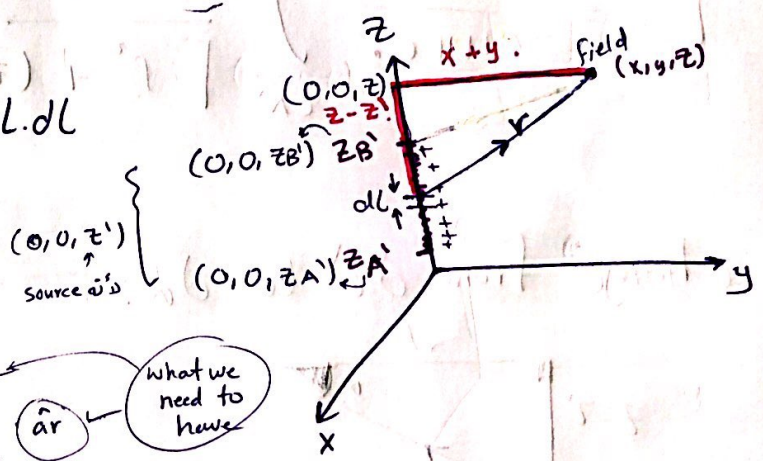 z
x + y .
field
(x, y, z)
(0, 0, z)
z - z'
L.dL
(0, 0, zB')
zB'
r
+
+
dL
+
+
+
+
+
(0, 0, z')
source
(0, 0, zA')
zA'
y
what we
need to
have
âr
x